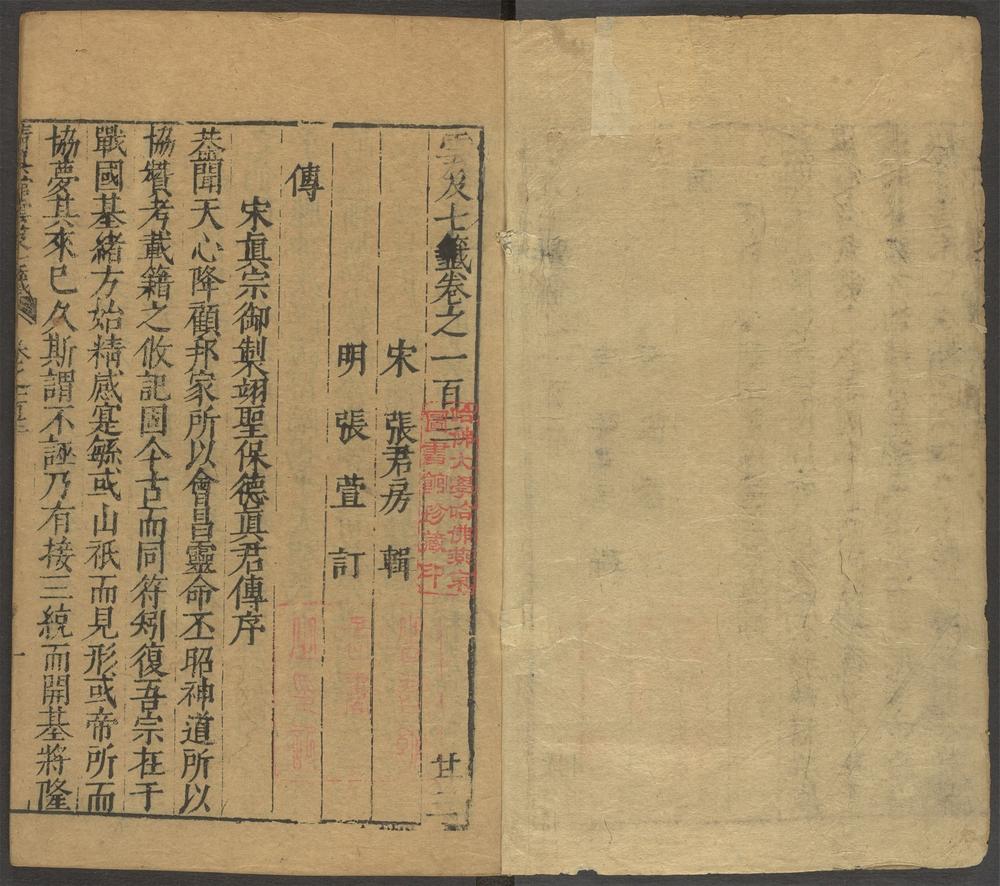 雲及七籤卷之一百三　廿二
宋　張君房　輯
明　張萱　訂
傳
宋眞宗御製翊聖保德眞君傳序
恭聞天心降顧邦家所以會昌靈命丕昭神道所以
協贊考載籍之攸記固今古而同符矧復吾宗在于
戰國基緒方始精感寔繇或山祇而見形或帝所而
協夢其來已久斯謂不誣乃有接三統而開基將隆
一
哈佛大學哈佛燕京
圖書館珍藏印